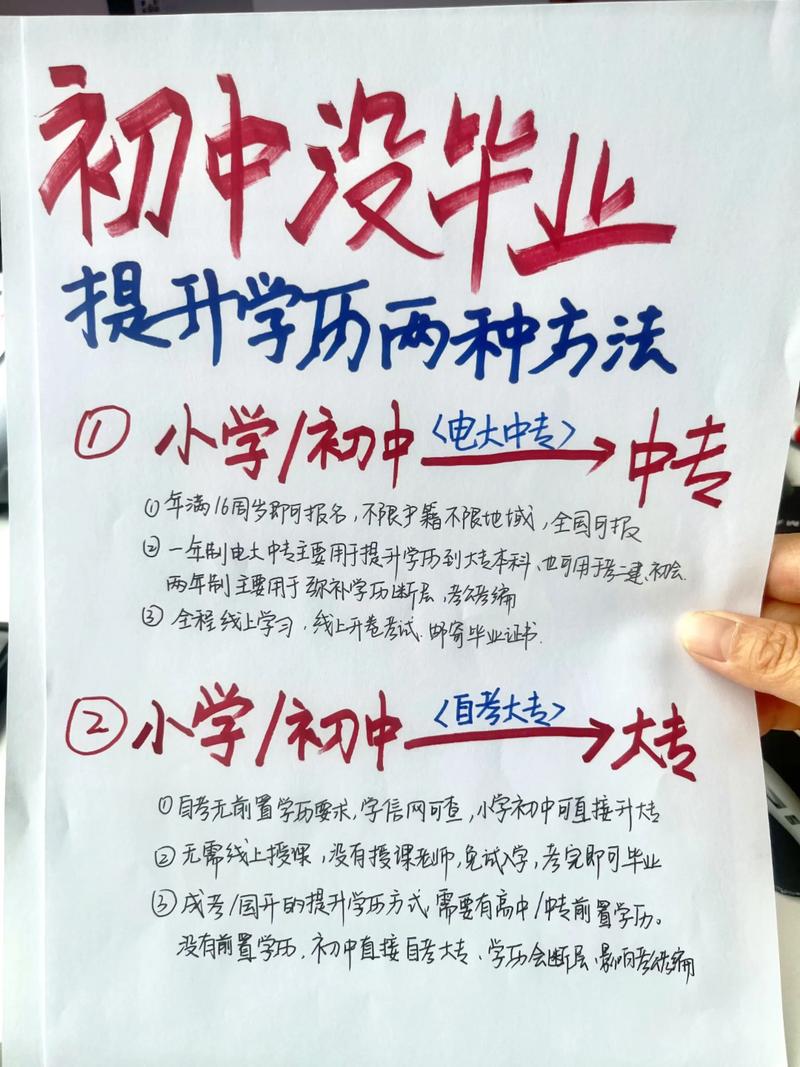 初中没毕业
提升学历两种方法
① 小学/初中 〈电大中专〉 中专
① 年满16周岁即可报名,不限户籍不限地域,全国可报
② 一年制电大中专主要用于提升学历到大专本科、也可用于考二建、初会
两年制主要用于弥补学历断层,考公考编
③ 全程线上学习,线上开卷考试.邮寄毕业证书.
② 小学/初中 〈自考大专〉 大专
① 自考无前置学历要求,学信网可查,小学初中可直接升大专
② 无需线上授课,没有授课老师,免试入学,考完即可毕业
③ 成考/国开的提升学历方式.需要有高中/中专前置学历。
没有前置学历,初中直接自考大专、学历会断层.影响考公考编